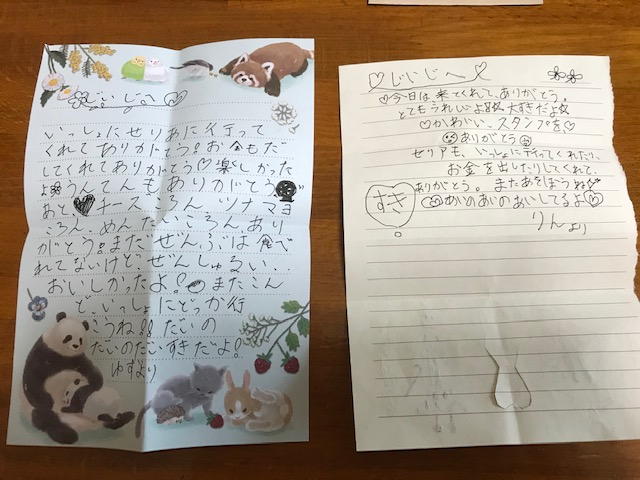 じいじへ
いっしょにせりあに行って
くれてありがとう!お金もだ
してくれてありがとう♡楽しかった
ようんてんもありがとう
あと、♥チーズころん、ツナマヨ
ころん、めんたいころん、あり
がとう!まだ、ぜんぶは食べ
れてないけど、ぜんしゅるい、、
おいしかったよ!またこん
ど、いっしょにどっか行
こうね!!だいの
だいのだいすきだよ!
ゆずより
♡じいじへ♡
♡今日は、来てくれて、ありがとう。
とてもうれしいよ 大すきだよ
♡かわいい、スタンプを♡
ありがとう
セリアも、いっしょに行ってくれたり、
お金を出したりしてくれて、
ありがとう。またあそぼうね
すき
あいのあいのあいしてるよ♡
りんより